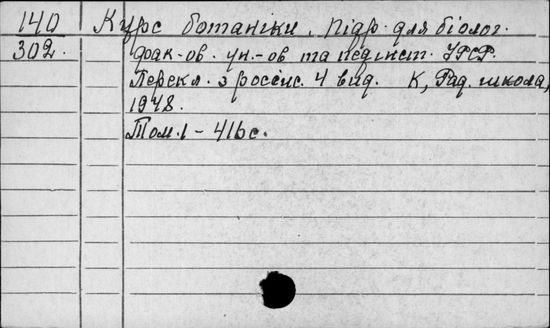 140 Курс ботаніки, підр. для біолог.
302. фак-ов. ун.-ов та педінст. УРСР.
Перекл. з россіс. 4 вид. К, Рад. школа,
1948.
Том.1 - 416с.